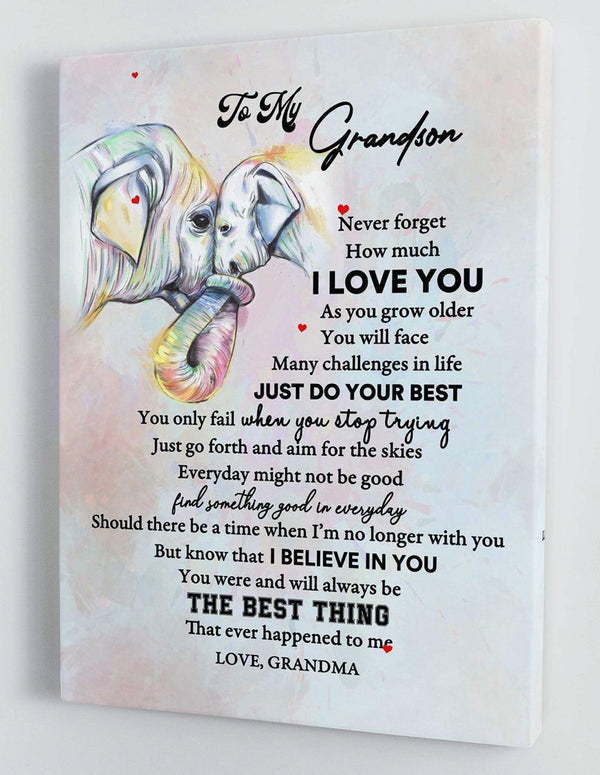 To My Grandson
Never forget
How much
I LOVE YOU
As you grow older
You will face
Many challenges in life
JUST DO YOUR BEST
You only fail when you stop trying
Just go forth and aim for the skies
Everyday might not be good
find something good in everyday
Should there be a time when I'm no longer with you
But know that I BELIEVE IN YOU
You were and will always be
THE BEST THING
That ever happened to me
LOVE, GRANDMA